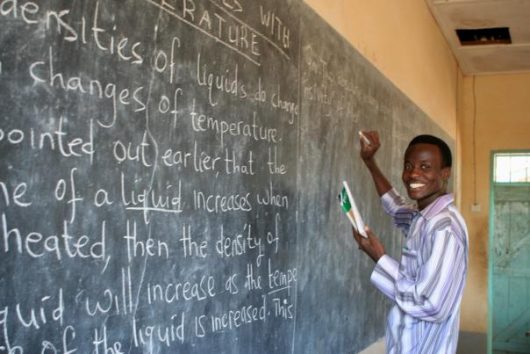 WITH
ERATURE
densities of liquids do change
changes of temperature.
pointed out earlier, that the
me of a liquid increases when
heated, then the density of
quid will increase as the tempe
of the liquid is increased. This